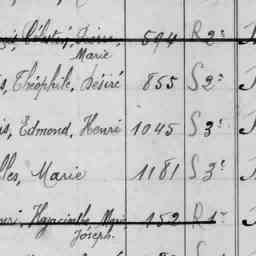 Célestin, Désiré, 594 R 2ᵉ
Marie
Théophile, Désiré 855 S 2ᵉ
is, Edmond, Henri 1045 S 3ᵉ
lles, Marie 1181 S 3ᵉ
nri, Hyacinthe, Marie 152 R 1ᵉ
Joseph.